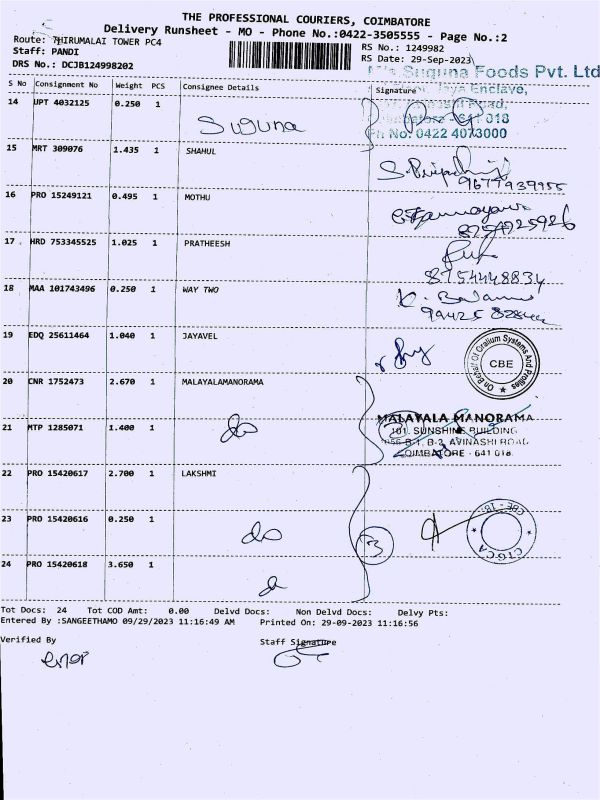 THE PROFESSIONAL COURIERS, COIMBATORE
Delivery Runsheet - MO - Phone No.:0422-3505555 - Page No.:2
Route: THIRUMALAI TOWER PC4
RS No.: 1249982
Staff: PANDI
RS Date: 29-Sep-2023
DRS No.: DCJB124998202
M/s Suguna Foods Pvt. Ltd
Jaya Enclave,
Road,
641 018
Ph No: 0422 4073000
S No Consignment No Weight PCS Consignee Details Signature
14 UPT 4032125 0.250 1 Suguna
15 MRT 309076 1.435 1 SHAHUL
9677939955
16 PRO 15249121 0.495 1 MOTHU
17 HRD 753345525 1.025 1 PRATHEESH
8754448834
18 MAA 101743496 0.250 1 WAY TWO
19 EDQ 25611464 1.040 1 JAYAVEL
On Behalf Of Oralium Systems And Profiles
CBE
20 CNR 1752473 2.670 1 MALAYALAMANORAMA
MALAYALA MANORAMA
101, SUNSHINE BUILDING
B-2, AVINASHI ROAD
COIMBATORE - 641 018.
21 MTP 1285071 1.400 1 do
22 PRO 15420617 2.700 1 LAKSHMI
23 PRO 15420616 0.250 1 do
3
CTGCA
CBE - 18
24 PRO 15420618 3.650 1
Tot Docs: 24 Tot COD Amt: 0.00 Delvd Docs: Non Delvd Docs: Delvy Pts:
Entered By :SANGEETHAMO 09/29/2023 11:16:49 AM Printed On: 29-09-2023 11:16:56
Verified By Staff Signature